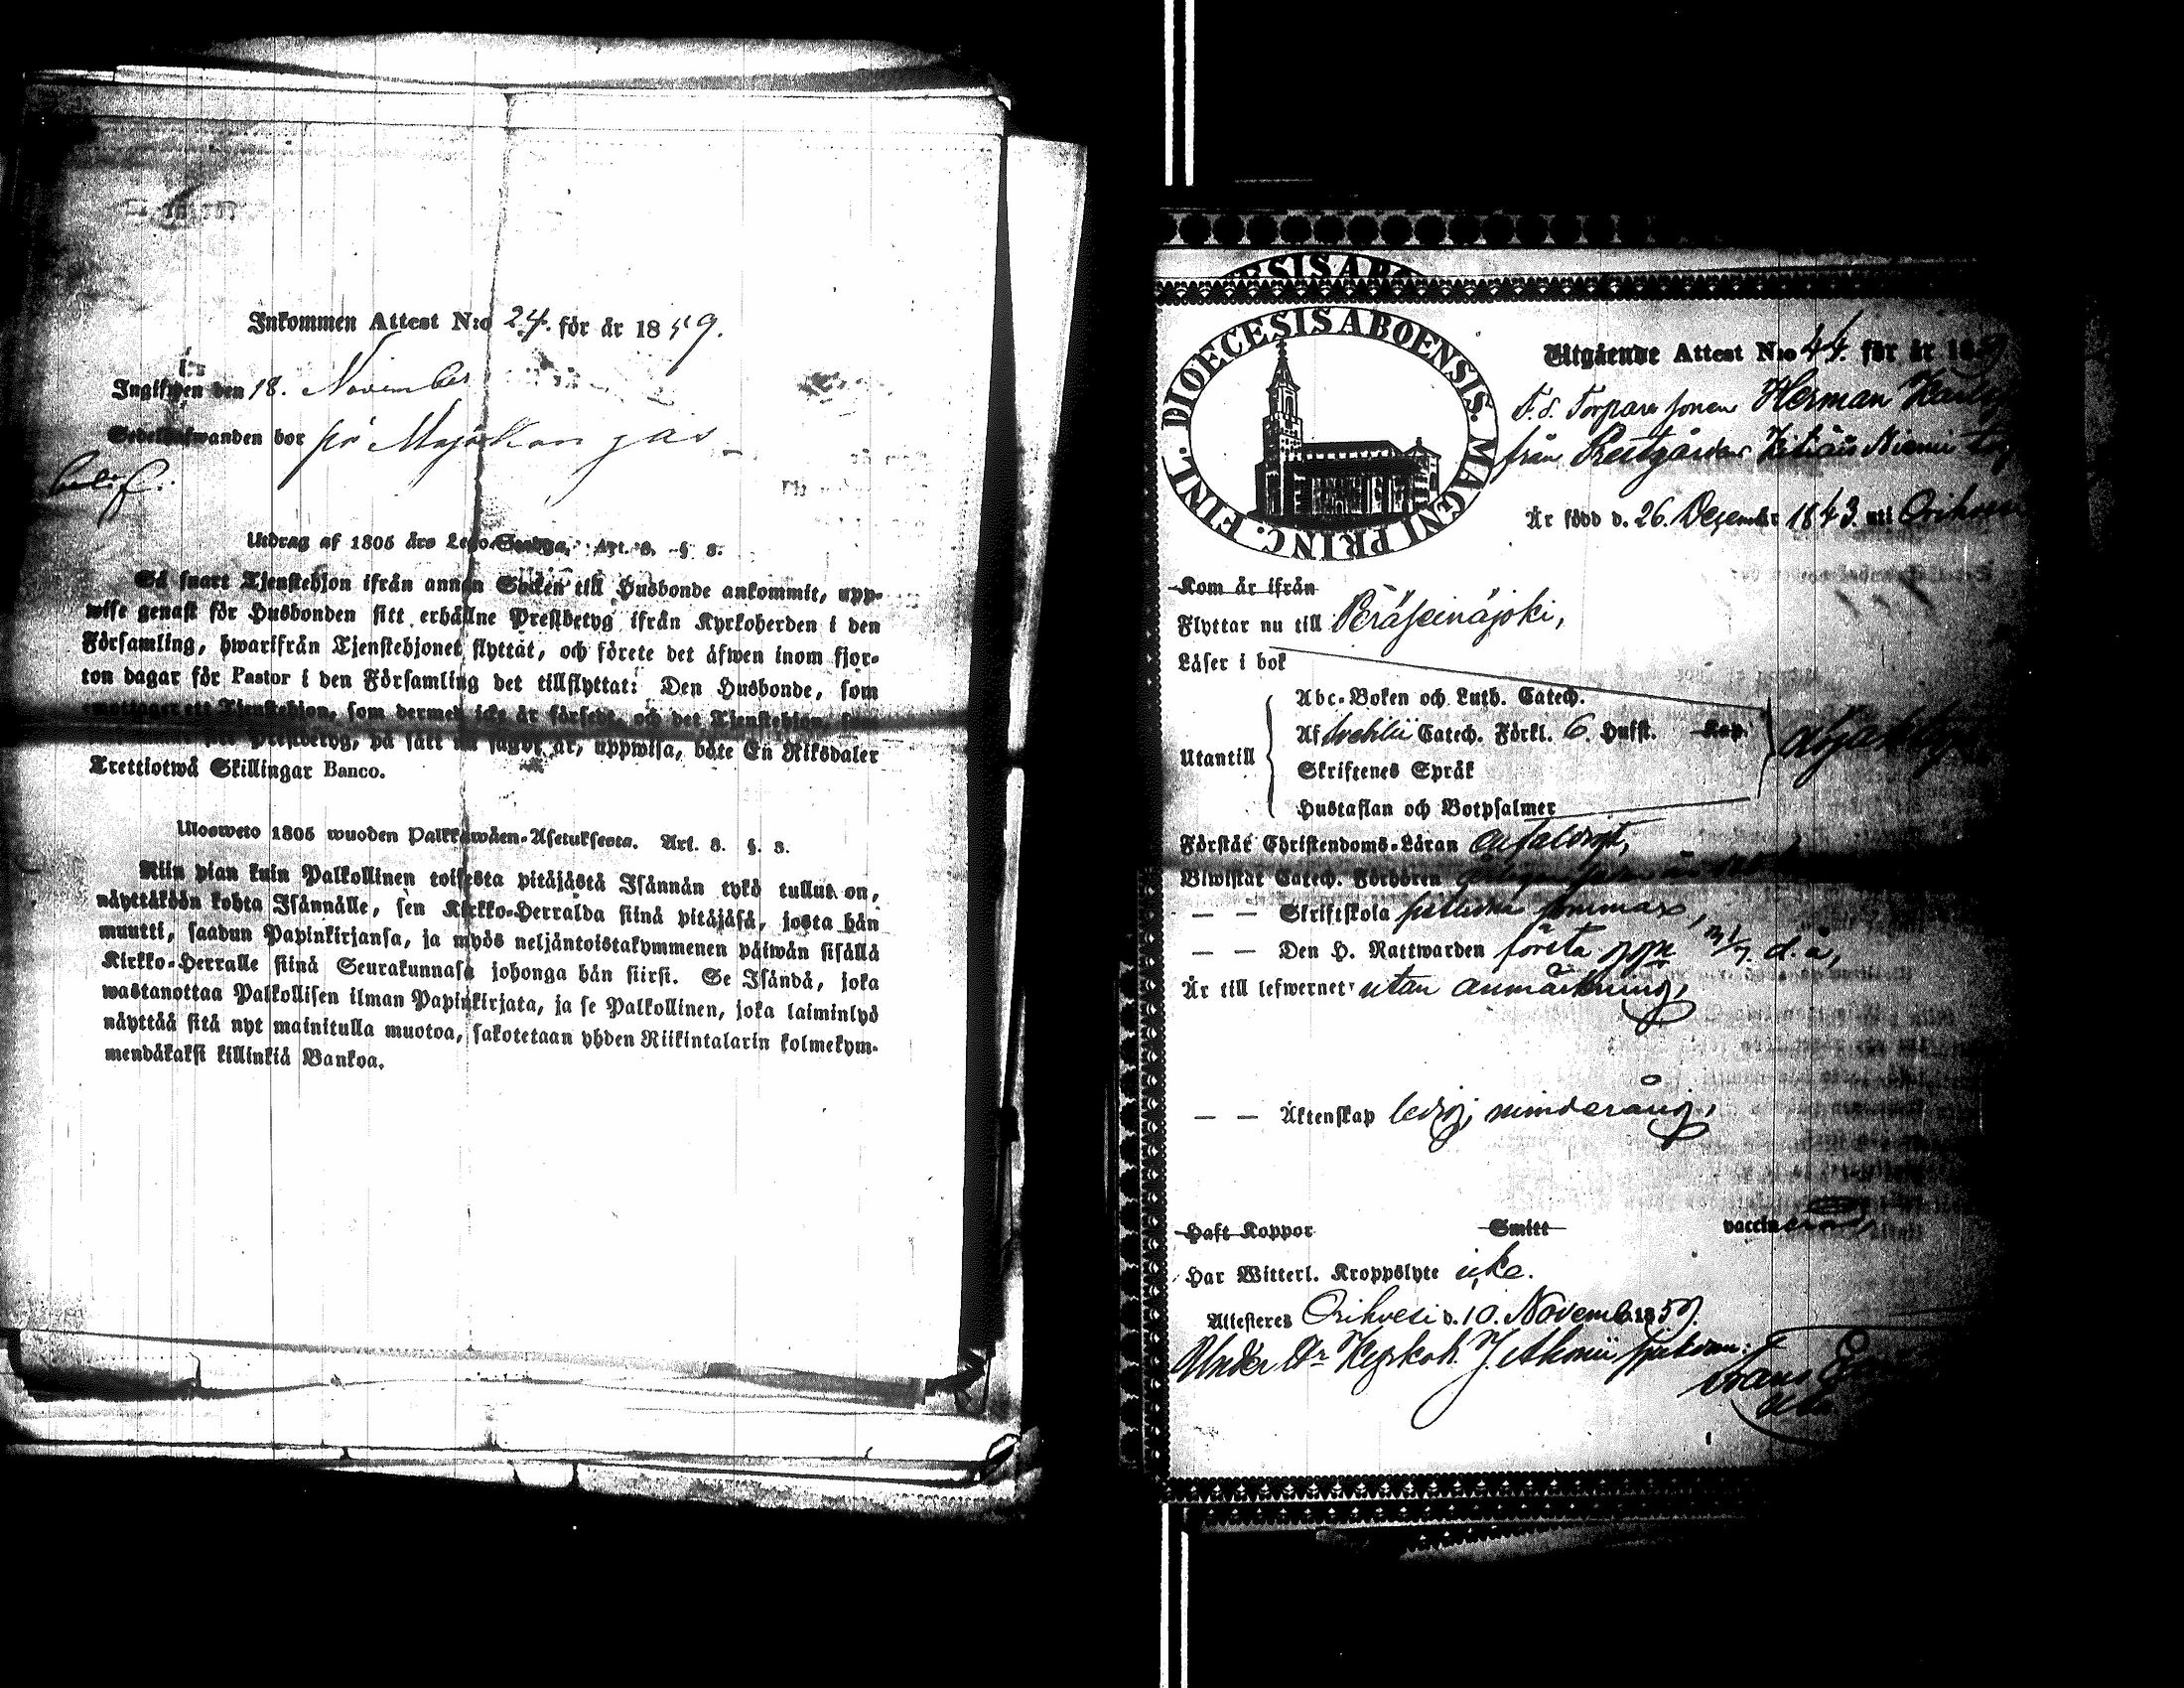 Inkommen Attest N:o 24. för år 1859.
Ingifwen den 18. November
Sedelhafwanden bor på
Utdrag af 1805 års Lego-Stadga, Art. 8. § 8.
Så snart Tjenstehjon ifrån annan Socken till Husbonde ankommit, upp-
wise genast för Husbonden sitt erhållne Prestbetyg ifrån Kyrkoherden i den
Församling, hwarifrån Tjenstehjonet flyttat, och förete det äfwen inom fjor-
ton dagar för Pastor i den Församling det tillflyttat: Den Husbonde, som
emottager ett Tjenstehjon, som dermed icke är försedt, och det Tjenstehjon,
Prestbetyg, på sätt nu sagdt är, uppwisa, böte En Riksdaler
Trettiotwå Skillingar Banco.
Ulosweto 1805 wuoden Palkkawäen-Asetuksesta. Art. 8. §. 8.
Niin pian kuin Palkollinen toisesta pitäjästä Isännän tykö tullut on,
näyttäköön kohta Isännälle, sen Kirkko-Herralda siinä pitäjäsä, josta hän
muutti, saadun Papinkirjansa, ja myös neljäntoistakymmenen päiwän sisällä
Kirkko-Herralle siinä Seurakunnasa johonga hän siirsi. Se Isändä, joka
wastanottaa Palkollisen ilman Papinkirjata, ja se Palkollinen, joka laiminlyö
näyttää sitä nyt mainitulla muotoa, sakotetaan yhden Riikintalarin kolmekym-
mendäkaksi killinkiä Bankoa.
DIOECESIS ABOENSIS. MAGNI PRINC. FINL.
Utgående Attest N:o 44. för år 1859
F.d. Torpare sonen Herman
från Prestgårdens Niemi
Är född d. 26. Dezember 1843. uti Orihvesi
Kom år ifrån
Flyttar nu till Peräseinäjoki,
Läser i bok
Abc-Boken och Luth. Catech.
Utantill Af Svebilii Catech. Förkl. 6. Hufst. Kap.
Skriftenes Språk
Hustaflan och Botpsalmer
Förstår Christendoms-Läran enfaldigt,
Biwistat Catech. Förhören
— — Skriftskola sistledne sommar,
— — Den H. Nattwarden första ggn 31/7. d.å,
Är till lefwernet utan anmärkning,
— — Äktenskap ledig, minderårig,
Haft Koppor Smitt vaccinerad
Har Witterl. Kroppslyte icke.
Attesteres Orihvesi d. 10. Novemb. 1859.